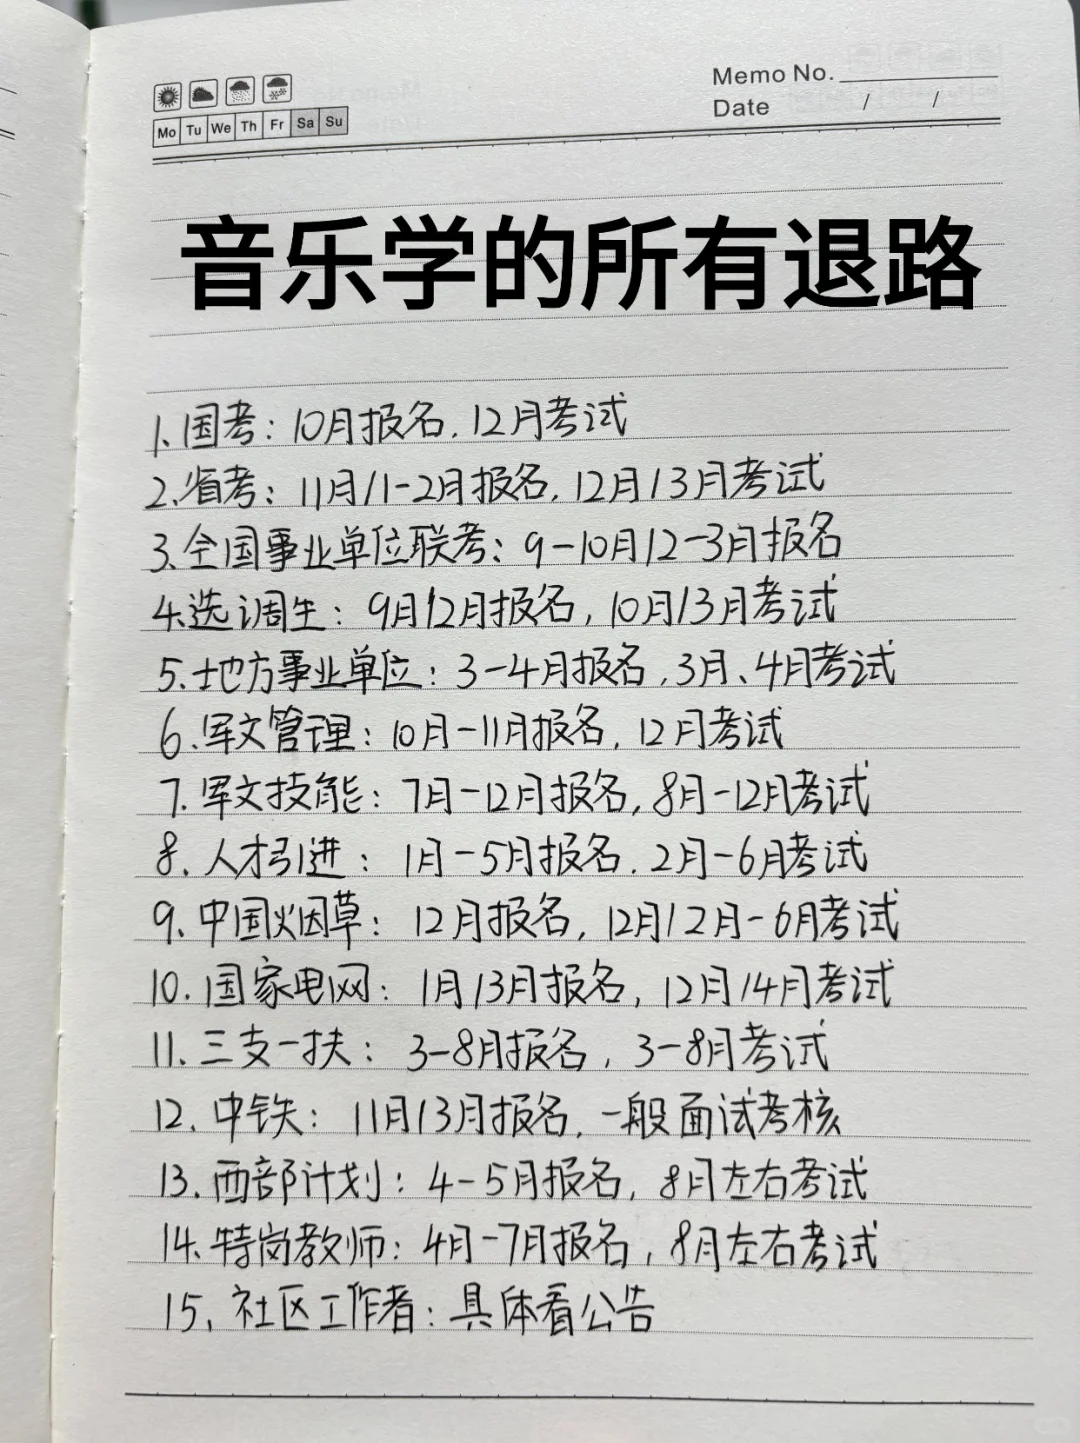 Memo No.
Mo Tu We Th Fr Sa Su
Date / /
音乐学的所有退路
1、国考：10月报名，12月考试
2、省考：11月/1-2月报名，12月/3月考试
3、全国事业单位联考：9-10月/2-3月报名
4、选调生：9月/2月报名，10月/3月考试
5、地方事业单位：3-4月报名，3月、4月考试
6、军文管理：10月-11月报名，12月考试
7、军文技能：7月-12月报名，8月-12月考试
8、人才引进：1月-5月报名，2月-6月考试
9、中国烟草：12月报名，12月/2月-6月考试
10、国家电网：1月/3月报名，12月/4月考试
11、三支一扶：3-8月报名，3-8月考试
12、中铁：11月/3月报名，一般面试考核
13、西部计划：4-5月报名，8月左右考试
14、特岗教师：4月-7月报名，8月左右考试
15、社区工作者：具体看公告